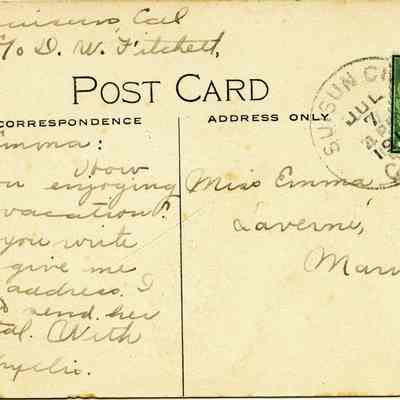 Cal
c/o D. W. Fitchett,
POST CARD
CORRESPONDENCE
ADDRESS ONLY
SUISUN CI
JUL
7
19
Emma:
How
enjoying
vacation?
you write
give me
address. I
send her
With
Miss Emma
Laverne,